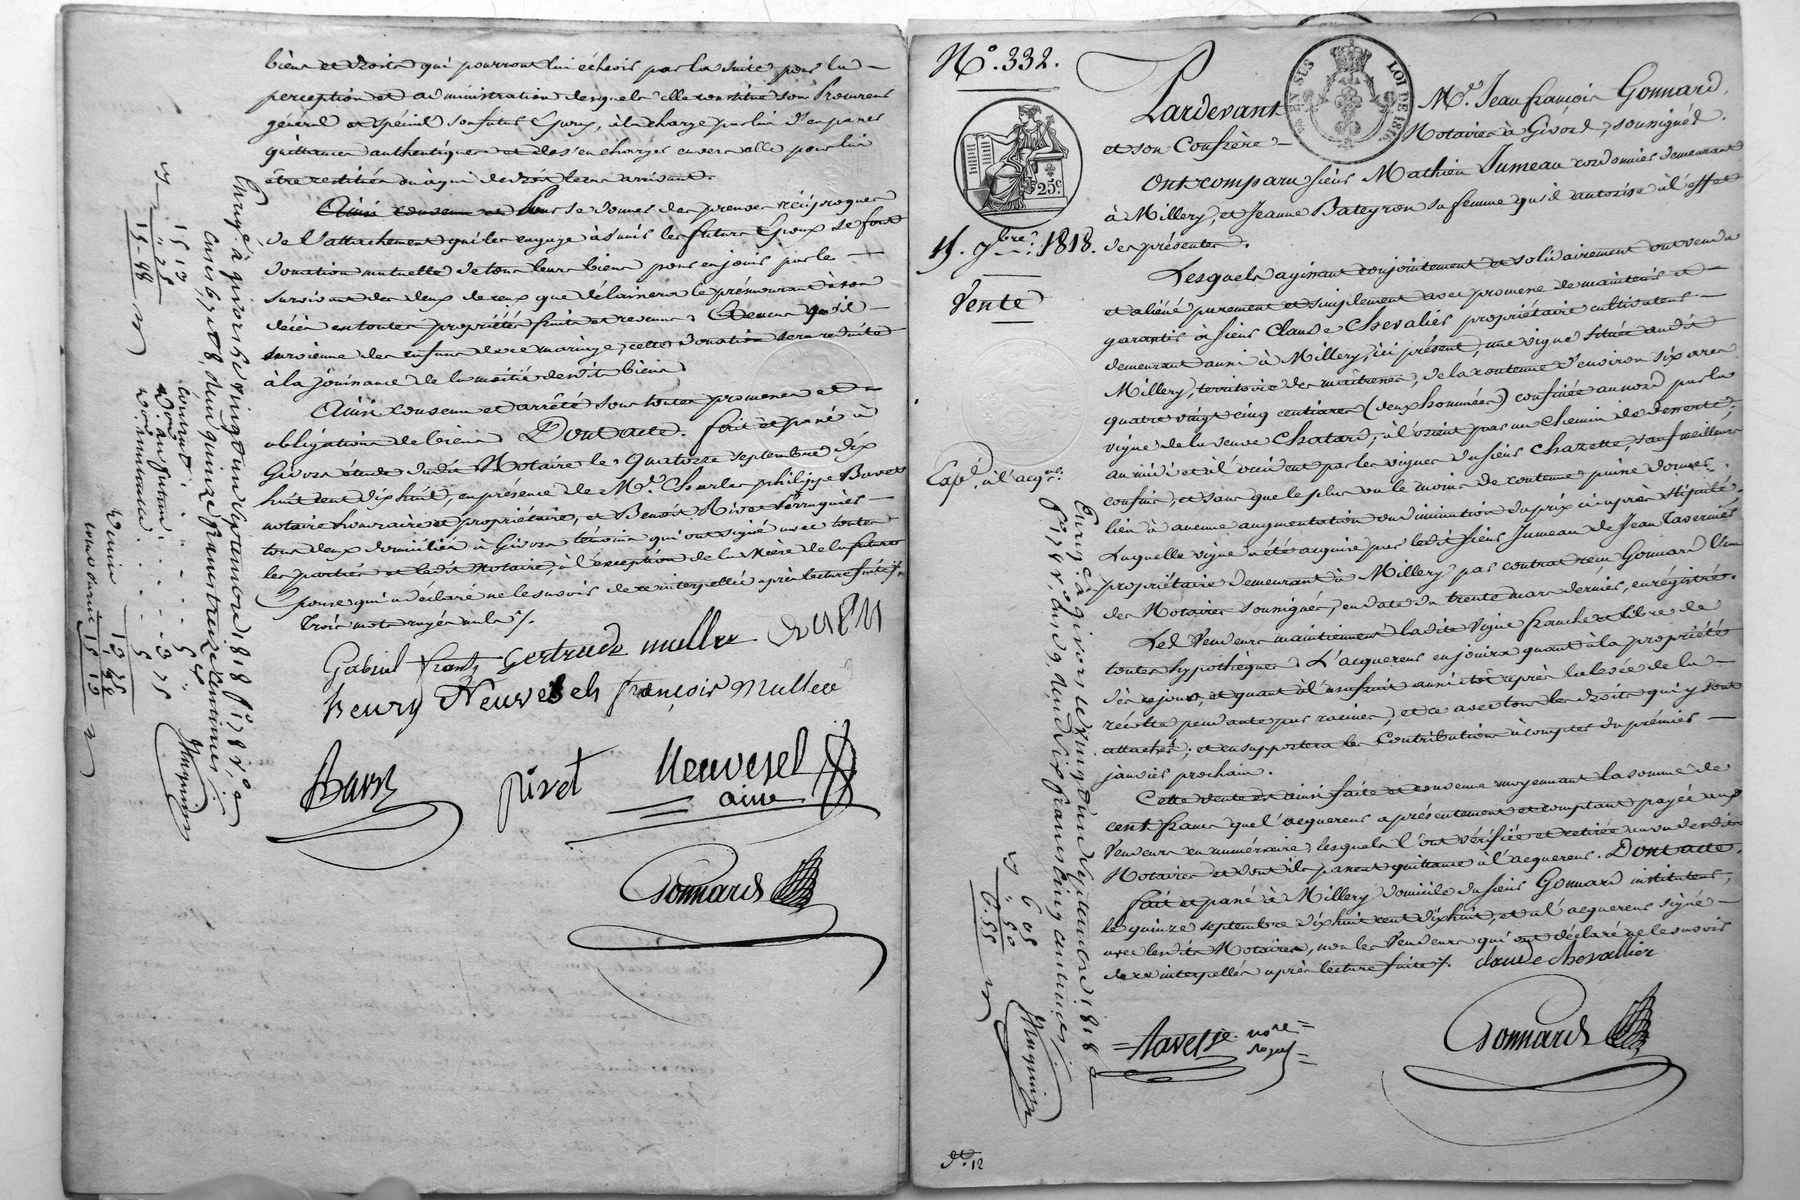 biens et droits qui pourront lui échoir par la suite, pour la
perception et administration desquels elle constitue son Procureur
général et spécial son futur Epoux, à la charge par lui d'en passer
quittances authentiques et de s'en charger envers elle pour lui
être restitués ou à qui de droit le cas arrivant.
Ainsi convenu et Pour se donner des preuves réciproques
de l'attachement qui les engage à s'unir les futurs Epoux se font
donation mutuelle de tous leurs biens pour en jouir par le
survivant des deux de ceux que délaissera le prémourant à son
décès en toute propriété fruits et revenus; Et en cas qu'il
survienne des enfans de ce mariage, cette donation sera réduite
à la jouissance de la moitié desdits biens
Ainsi convenu et arrêté sous toutes promesses et
obligations de biens Dont acte. fait et passé à
Givors étude dudit Notaire le Quatorze septembre dix
huit cent dix huit, en présence de Mr. Charles philippe
notaire honoraire et propriétaire, et Benoit Rivet Perruquier
tous deux domiciliés à Givors témoins qui ont signé avec toutes
les parties et ledit Notaire, à l'exception de la Mère de la future
pouse qui a déclaré ne le savoir de ce interpellée après lecture faite /.
Trois mots rayés nuls /.
Gabriel frantz Gertrude muller
henry Neuvesel françois Muller
Rivet Neuvesel
aine
Gonnard
Enreg.é à givors le vingt un septembre 1818 fo. 178 vo.
Cases 6, 7 et 8, deux quinze francs treize centimes:
N.o 332.
25c.
EN SUS LOI DE 1816
15. 7bre. 1818.
Vente
Expé. à l'acqr.
Pardevant Me. Jean françois Gonnard,
et son Confrère Notaires à Givord, soussignés.
Ont comparu sieur Mathieu Jumeau cordonnier demeurant
à Millery, et Jeanne Bateyron sa femme qu'il autorise à l'effet
des présentes.
Lesquels agissant conjointement et solidairement ont vendu
et aliéné purement et simplement avec promesse de maintenir et
garantir à sieur Claude Chevalier propriétaire cultivateur
demeurant aussi à Millery, ici présent, une vigne située audit
Millery, territoire des, de la contenue d'environ six ares
quatre vingt cinq centiares (deux hommées) confinée au nord par la
vigne de la veuve Chatard, à l'orient par un chemin de desserte,
au midi et à l'occident par les vignes du sieur Chazette, sauf meilleurs
confins, et sans que le plus ou le moins de contenue puisse donner
lieu à aucune augmentation ou diminution du prix ci après stipulé.
Laquelle vigne a été acquise par ledit sieur Jumeau de Jean Tavernier
propriétaire demeurant à Millery par contrat reçu Gonnard l'un
des Notaires soussignés, en date du trente mars dernier, enregistré.
Led. Vendeurs maintiennent ladite vigne franche et libre de
toutes hypothèques. L'acquereur en jouira quant à la propriété
dès ce jour, et quant à l'usufruit aussitôt après la levée de la
récolte pendante par racines, et ce avec tous les droits qui y sont
attachés; et en supportera les Contributions à compter du premier
janvier prochain.
Cette vente est ainsi faite et convenue moyennant la somme de
cent francs que l'acquereur a présentement et comptant payée aux
Vendeurs en numéraire, lesquels l'ont vérifiée et retirée au vu desdits
Notaires et dont ils passent quittance à l'acquereur. Dont acte.
fait et passé à Millery domicile du sieur Gonnard instituteur,
le quinze septembre dix huit cent dix huit, et a l'acquereur signé
avec lesdits Notaires, non les Vendeurs qui ont déclaré ne le savoir
de ce interpellés après lecture faite /. claude chevallier
Gonnard
Enreg.é à givors le vingt un septembre 1818
fo. 178 vo. Case 9, deux six francs cinq centimes
6 05
, 50
6. 55